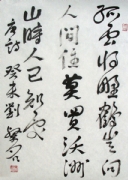 孤雲将野鶴豈向
人间住莫買沃洲
山時人已知處
唐詩 癸未 劉